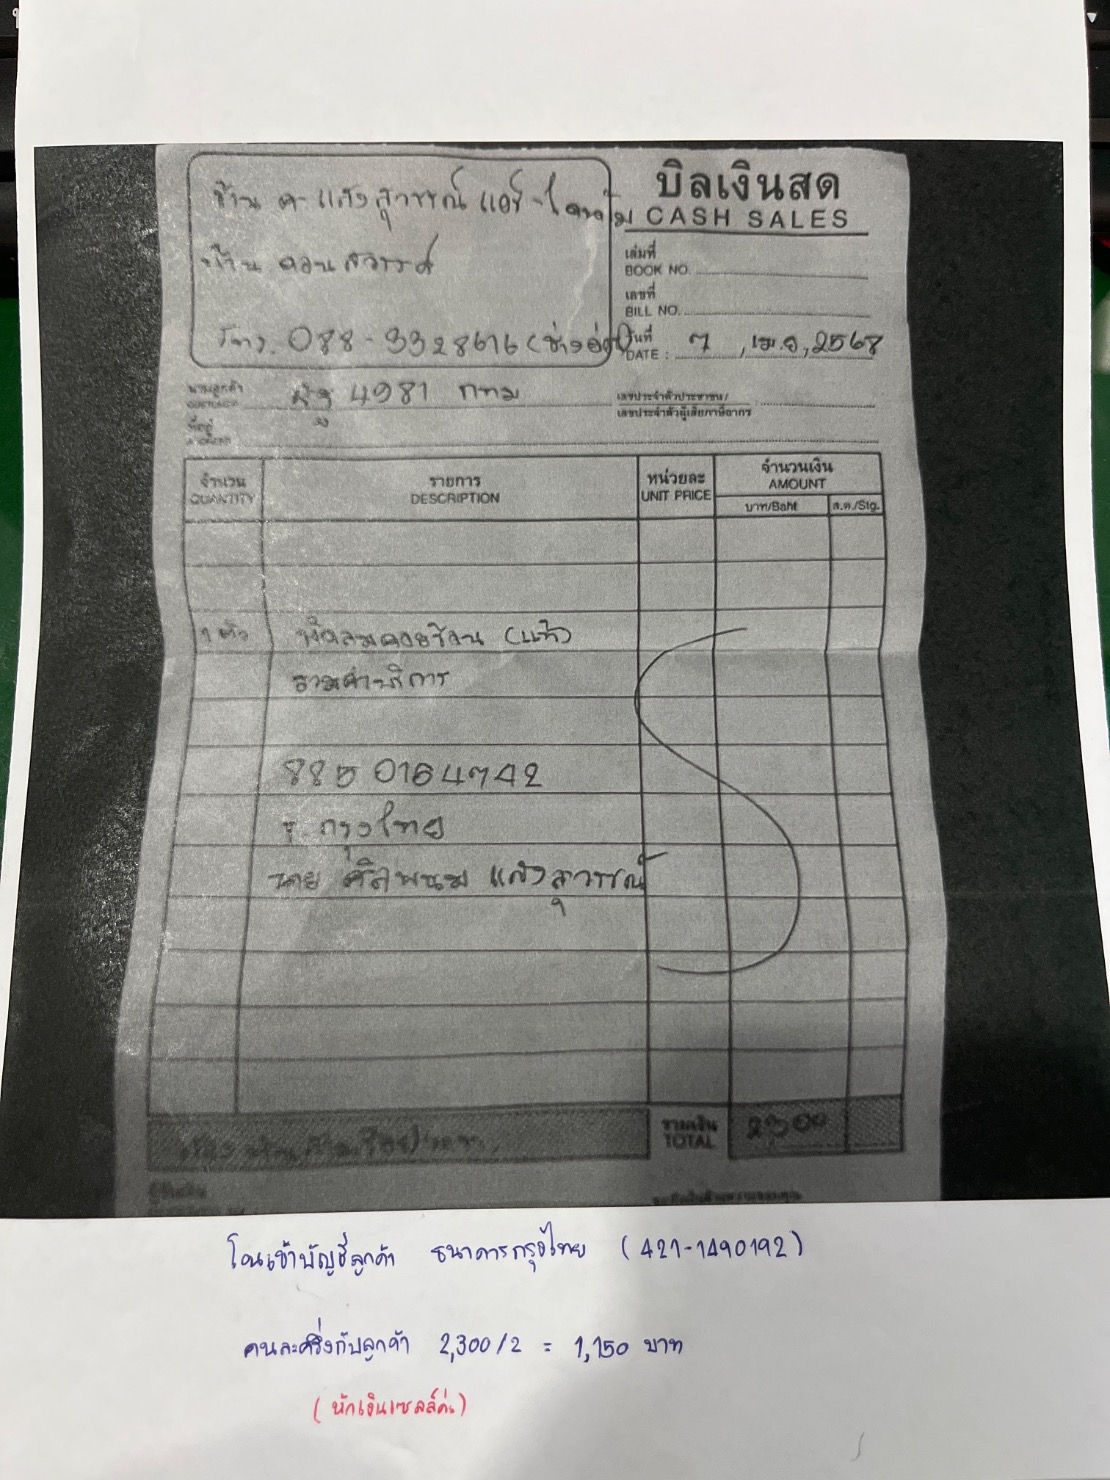 ร้าน ต. แสงสุวรรณ์ แอร์-ไดนาโม
บ้าน ดอนสวรรค์
โทร. 088-3328616 (ช่างอ๋อ)
บิลเงินสด
CASH SALES
เล่มที่
BOOK NO.
เลขที่
BILL NO.
วันที่
DATE : 7 , เม.ย , 2568
นามลูกค้า 4981 กทม
เลขประจำตัวประชาชน/
เลขประจำตัวผู้เสียภาษีอากร
ที่อยู่
จำนวน
QUANTITY
รายการ
DESCRIPTION
หน่วยละ
UNIT PRICE
จำนวนเงิน
AMOUNT
บาท/Baht
ส.ต./Stg.
1 ตัว พัดลมคอยร้อน (แท้)
รวมค่าบริการ
885 0164742
ธ. กรุงไทย
นาย ศิลพนม แสงสุวรรณ์
รวมเงิน
TOTAL 2300
โอนเข้าบัญชีลูกค้า ธนาคารกรุงไทย (421-1490192)
คนละครึ่งกับลูกค้า 2,300/2 = 1,150 บาท
(หักเงินเซลล์ค่ะ)